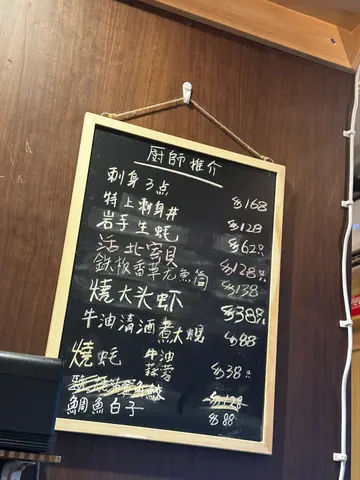 厨師推介
刺身3点 $168
特上刺身丼 $128
岩手生蚝 $62只
活北寄貝 $128只
鉄板香草尤魚筒 $138
燒大头虾 $38只
牛油清酒煮大蜆 $88
燒蚝 牛油 蒜蓉 $38只
$128
鯛魚白子 $88